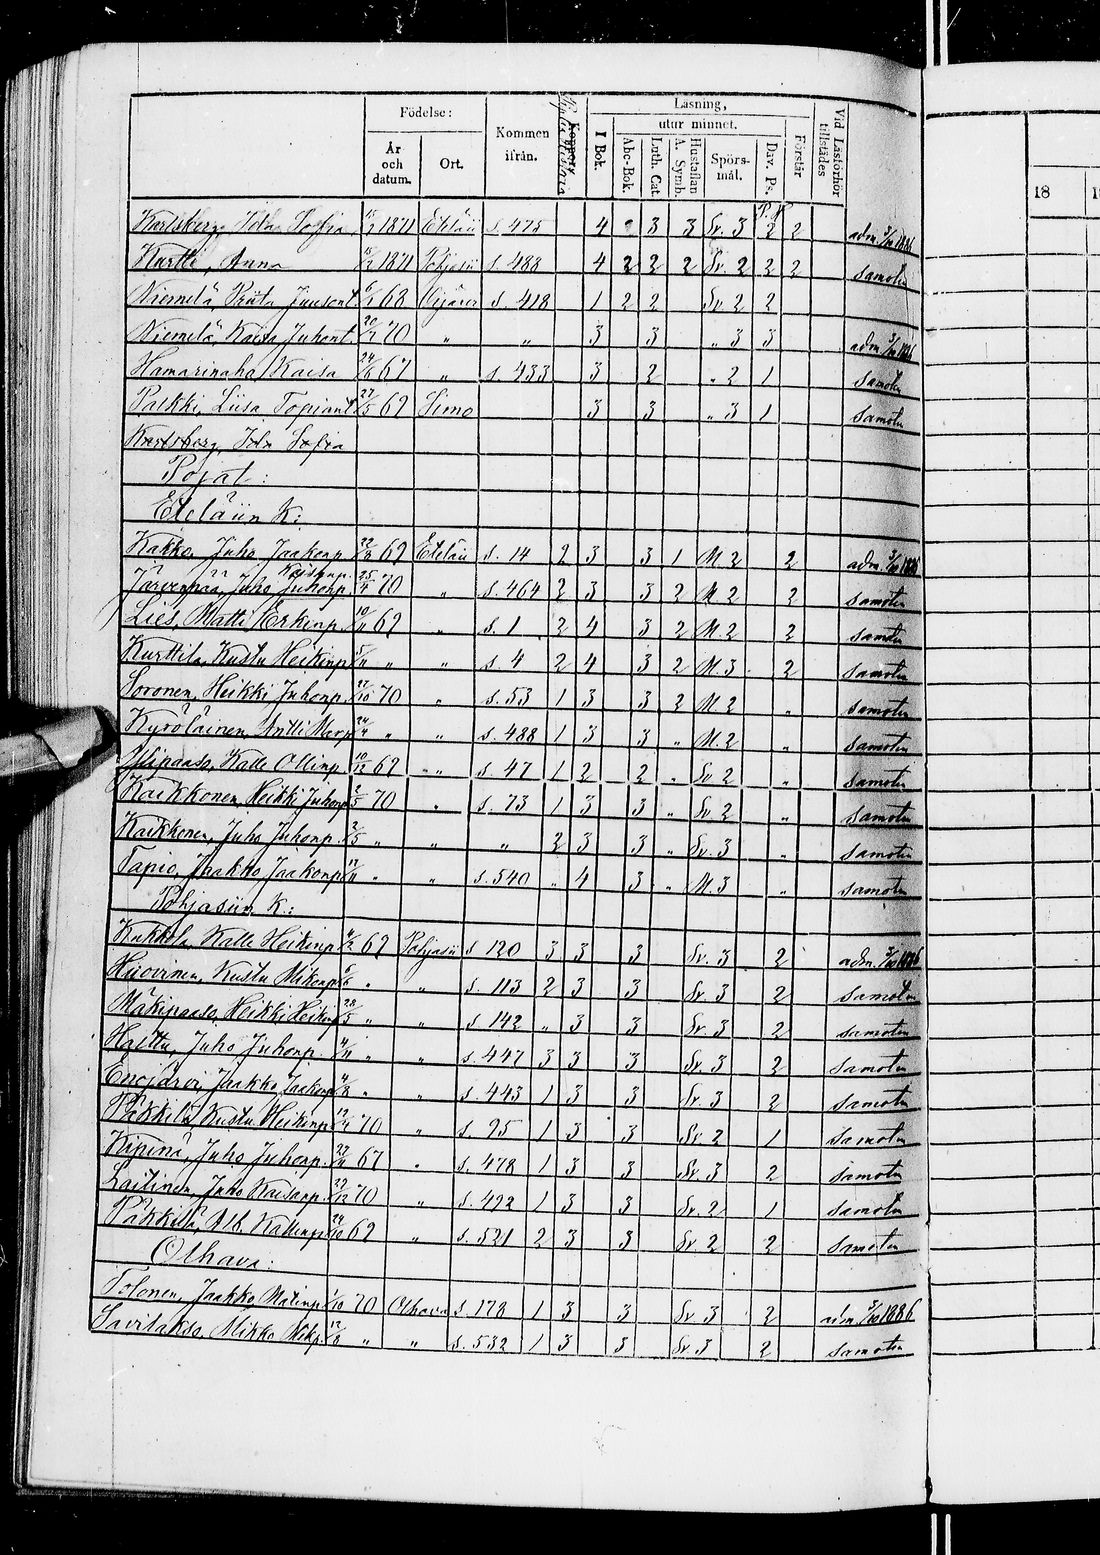 Födelse: Kommen ifrån. I Bok. Läsning, utur minnet. Förstår Vid Läsförhör tillstädes
År och datum. Ort. Abc-Bok. Luth. Cat. Hustaflan A. Symb. Spörs-mål. Dav. Ps.
18
Karlsberg, Ida Sofia 1871 Eteläii s. 475 4 3 3 Sv. 3 2 2 adm. 1886
Kurtti, Anna 15/2 1871 Pohjasii s. 488 4 2 2 2 Sv. 2 2 2 samoten
Niemelä, Juusont. 68 s. 418 1 2 2 Sv 2 2
Niemelä, Kaisa Juhont. 20/7 70 „ „ 3 3 „ 3 3 adm. 1886
Hamarinaho Kaisa 24/6 67 „ s. 433 3 2 „ 2 1 samoten
Palkki, Liisa Topiant. 27/5 69 Simo 3 3 „ 3 1 samoten
Karlsberg, Ida Sofia
Pojat:
Eteläiin K:
Kakko, Juho Jaakonp. 22/8 69 Eteläii s. 14 2 3 3 1 M 2 2 adm. 1886
Järvenpää, Juho Juhonp. 25/4 70 „ s. 464 2 3 3 2 M 2 2 samoten
Lies, Matti Erkinp. 10/11 69 „ s. 1 2 4 3 2 M. 2 2 samoten
Kurttila, Kustu Heikinp. 5/11 „ „ s. 4 2 4 3 2 M. 3 2 samoten
Soronen, Heikki Juhonp. 17/10 70 „ s. 53 1 3 3 2 M. 2 „ samoten
Kyröläinen, Antti Marp. 24/4 „ „ s. 488 1 3 3 „ M. 2 „ samoten
Ylipaaso, Kalle Ollinp. 10/12 69 „ s. 47 1 2 2 „ Sv 2 „ samoten
Kaikkonen, Heikki Juhonp. 2/5 70 „ s. 73 1 3 3 „ Sv 2 „ samoten
Kaikkonen, Juho Juhonp. 2/5 „ „ „ 2 3 3 „ Sv. 3 „ samoten
Tapio, Jaakko Jaakonp. 17/11 „ „ s. 540 „ 4 3 „ M. 3 „ samoten
Pohjasiin K.:
Kakkola Kalle Heikinp. 4/2 69 Pohjasii s 120 3 3 3 Sv. 3 2 adm. 1886
Huovinen, Kustu Mikonp. 6/6 „ „ s. 113 2 3 3 Sv 3 2 samoten
Mäkipaaso, Heikki Heikinp. 28/5 „ „ s. 142 „ 3 3 Sv 3 2 samoten
Haltta, Juho Juhonp. 4/11 „ „ s. 447 3 3 3 Sv. 3 2 samoten
Enojärvi, Jaakko Jaakonp. 4/8 „ „ s. 443 1 3 3 Sv. 3 2 samoten
Päkkilä, Kustu Heikinp. 12/4 70 „ s. 95 1 3 3 Sv 2 1 samoten
Kipinä, Juho Juhonp. 27/4 67 „ s. 478 1 3 3 Sv 3 2 samoten
Laitinen, Juho Kaisanp. 29/12 70 „ s. 492 1 3 3 Sv. 2 1 samoten
Päkkilä, Alb. Kallenp. 24/10 69 „ s. 521 2 3 3 Sv 2 2 samoten
Olhava:
Tolonen, Jaakko Matinp. 1/10 70 Olhava s. 178 1 3 3 Sv 3 2 adm. 1886
Savilakso, Mikko Mikp. 12/8 „ „ s. 532 1 3 3 Sv. 3 2 samoten